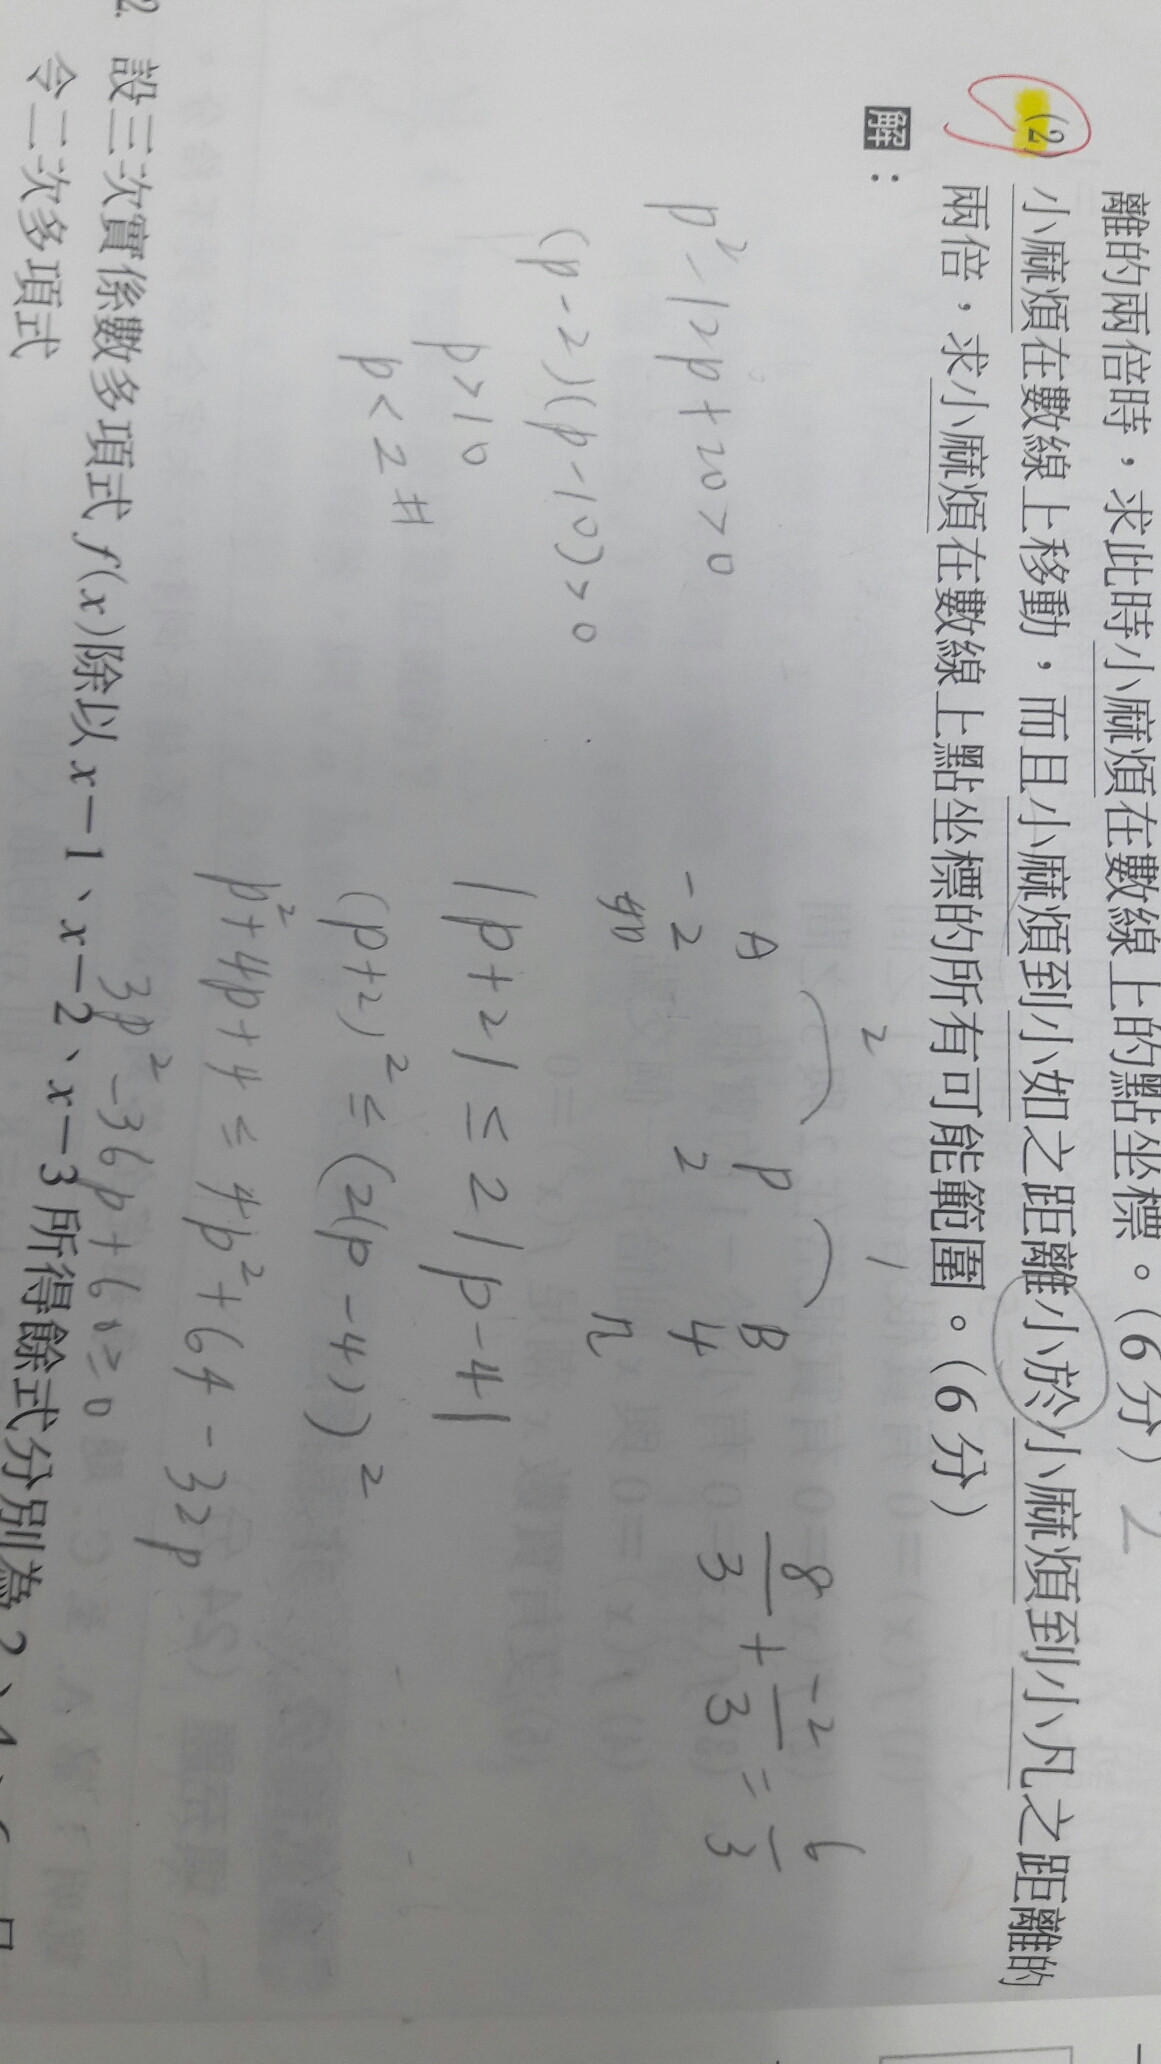 離的兩倍時,求此時小麻煩在數線上的點坐標。(6分) 2
(2) 小麻煩在數線上移動,而且小麻煩到小如之距離小於小麻煩到小凡之距離的
兩倍,求小麻煩在數線上點坐標的所有可能範圍。(6分)
解:
p²-12p+20>0
(p-2)(p-10)>0
p>10
p<2 #
2 1
A P B
-2 2 4
如 凡
|p+2| ≤ 2|p-4|
(p+2)² ≤ (2(p-4))²
p²+4p+4 ≤ 4p²+64-32p
3p²-36p+60≥0
8/3 + -2/3 = 6/3
2. 設三次實係數多項式 f(x)除以 x-1、x-2、x-3所得餘式分別為2、4、6,且
令二次多項式